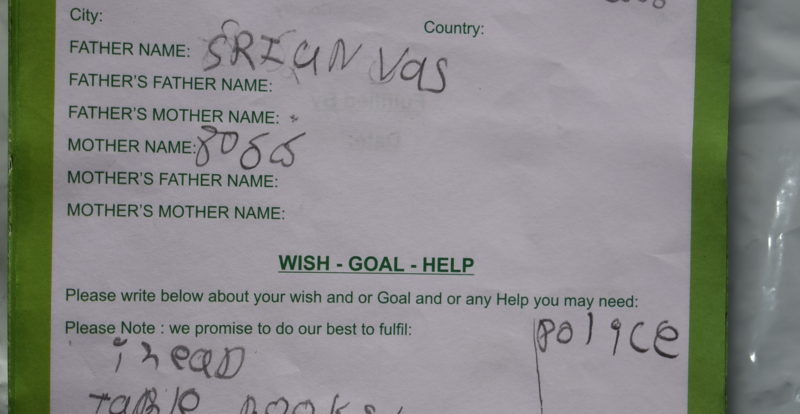 City:
Country:
FATHER NAME: SRIUNVas
FATHER'S FATHER NAME:
FATHER'S MOTHER NAME:
MOTHER NAME:
MOTHER'S FATHER NAME:
MOTHER'S MOTHER NAME:
WISH - GOAL - HELP
Please write below about your wish and or Goal and or any Help you may need:
Please Note : we promise to do our best to fulfil:
police
i nead
TaBle Books